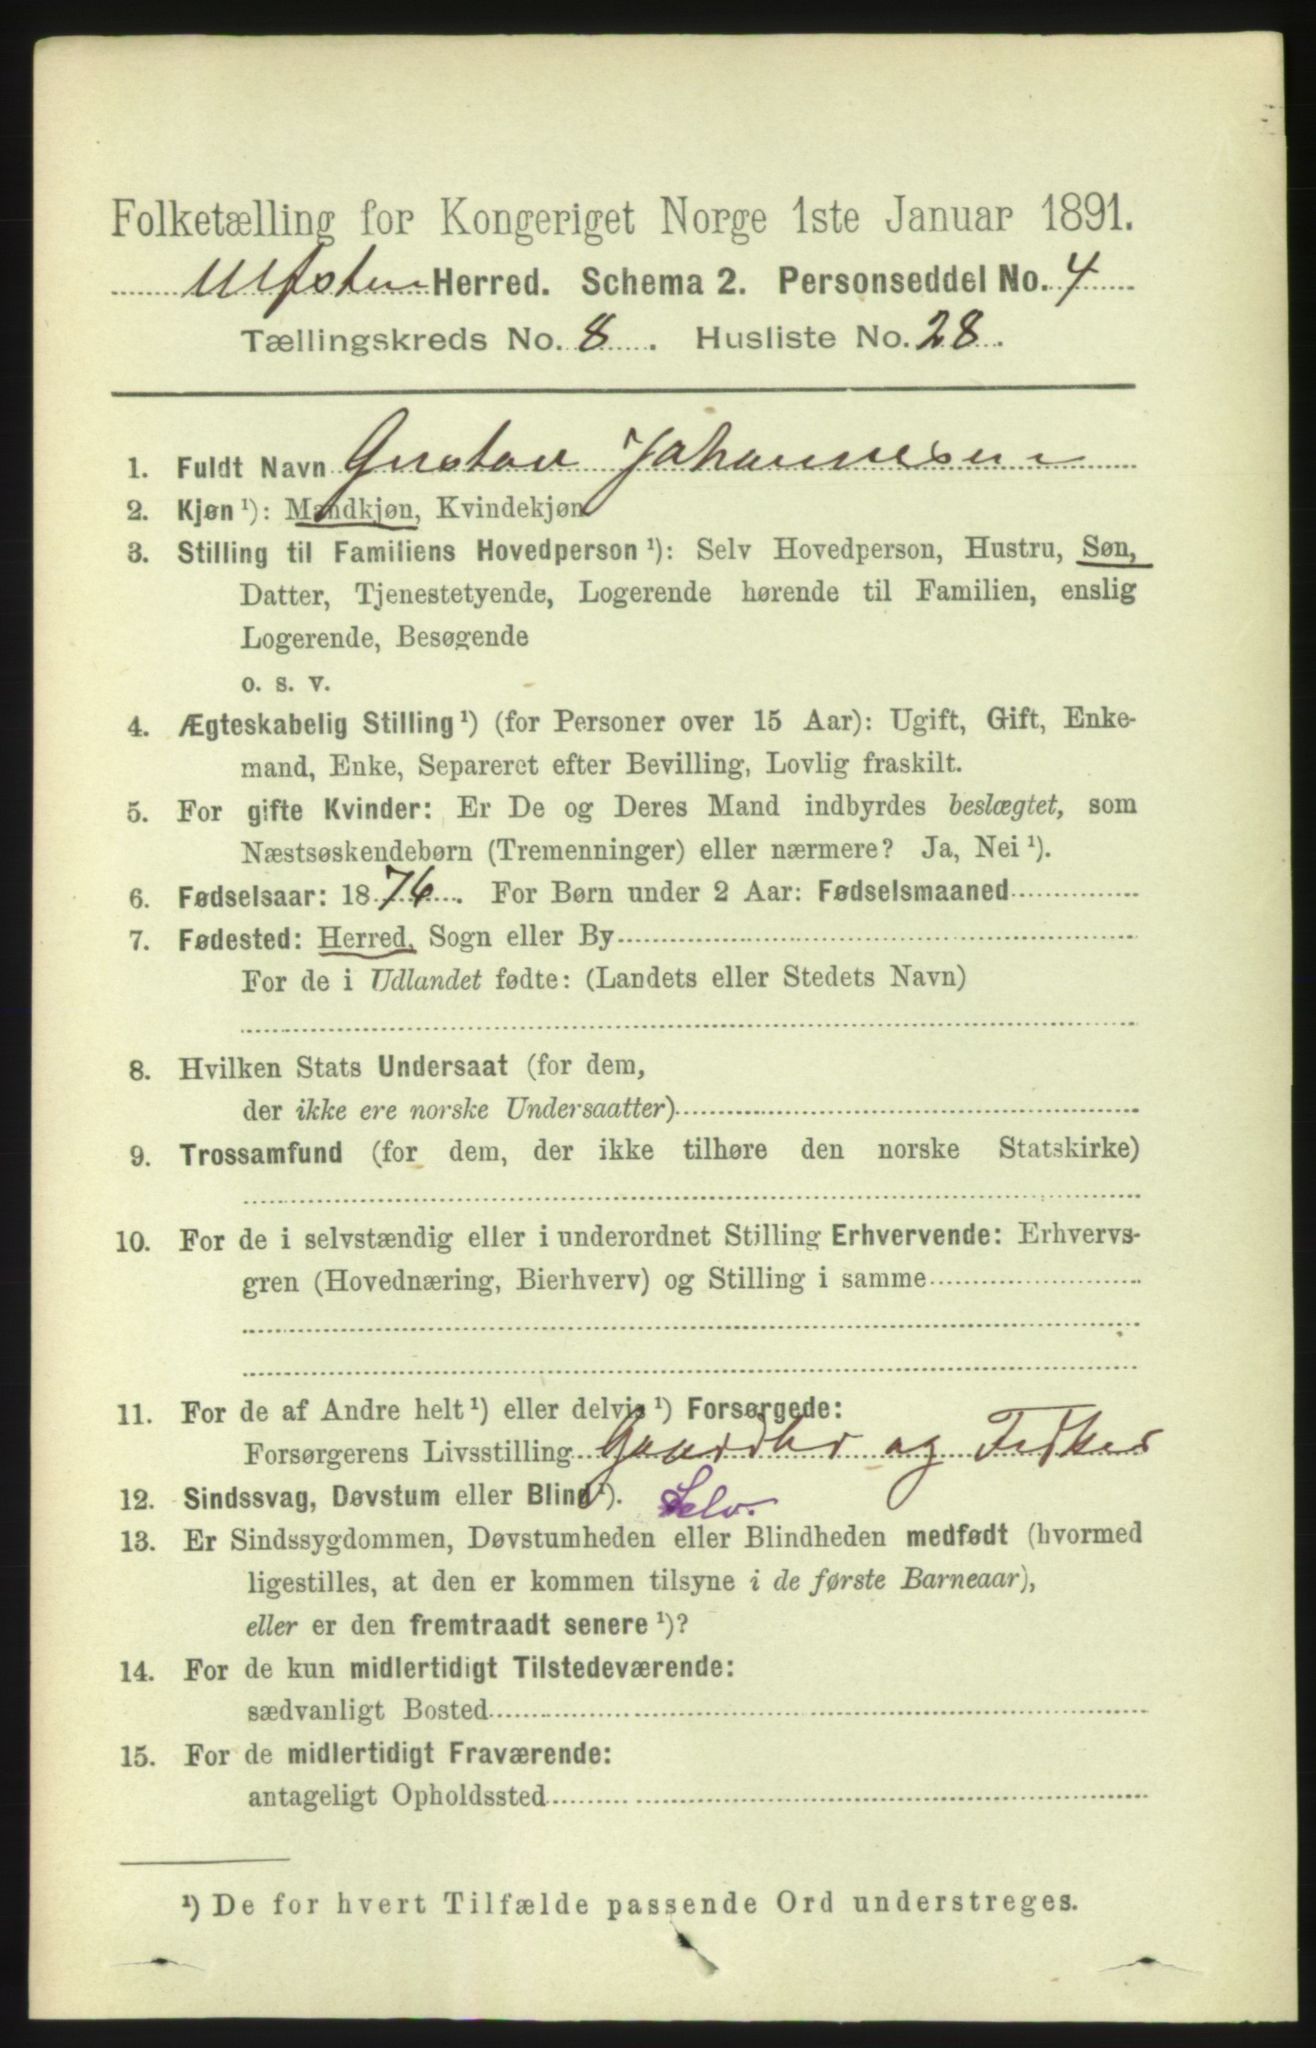 Folketælling for Kongeriget Norge 1ste Januar 1891.
Ulfsten Herred. Schema 2. Personseddel No. 4
Tællingskreds No. 8. Husliste No. 28.
1. Fuldt Navn Gustav Johannesen
2. Kjøn ¹): Mandkjøn, Kvindekjøn
3. Stilling til Familiens Hovedperson ¹): Selv Hovedperson, Hustru, Søn,
Datter, Tjenestetyende, Logerende hørende til Familien, enslig
Logerende, Besøgende
o. s. v.
4. Ægteskabelig Stilling ¹) (for Personer over 15 Aar): Ugift, Gift, Enke-
mand, Enke, Separeret efter Bevilling, Lovlig fraskilt.
5. For gifte Kvinder: Er De og Deres Mand indbyrdes beslægtet, som
Næstsøskendebørn (Tremenninger) eller nærmere? Ja, Nei ¹).
6. Fødselsaar: 1876. For Børn under 2 Aar: Fødselsmaaned
7. Fødested: Herred, Sogn eller By
For de i Udlandet fødte: (Landets eller Stedets Navn)
8. Hvilken Stats Undersaat (for dem,
der ikke ere norske Undersaatter)
9. Trossamfund (for dem, der ikke tilhøre den norske Statskirke)
10. For de i selvstændig eller i underordnet Stilling Erhvervende: Erhvervs-
gren (Hovednæring, Bierhverv) og Stilling i samme
11. For de af Andre helt ¹) eller delvis ¹) Forsørgede:
Forsørgerens Livsstilling Gaardbr og Fisker
12. Sindssvag, Døvstum eller Blind ¹). Selv.
13. Er Sindssygdommen, Døvstumheden eller Blindheden medfødt (hvormed
ligestilles, at den er kommen tilsyne i de første Barneaar),
eller er den fremtraadt senere ¹)?
14. For de kun midlertidigt Tilstedeværende:
sædvanligt Bosted
15. For de midlertidigt Fraværende:
antageligt Opholdssted
¹) De for hvert Tilfælde passende Ord understreges.